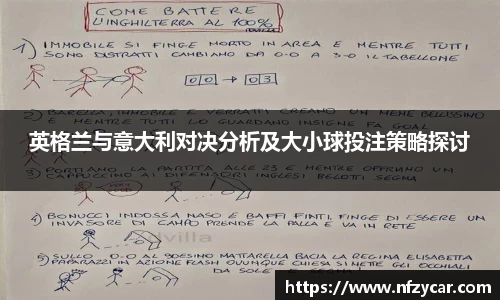 COME BATTERE
L'INGHILTERRA AL 100%
1) IMMOBILE SI FINGE MORTO IN AREA E MENTRE TUTTI
SONO DISTRATTI CAMBIAMO DA 0-0 A 3-0 IL TABELLONE
00 → 03
2) BARELLA, IMMOBILE E VERRATTI CREANO UN MEME BELLISSIMO
E MENTRE TUTTI LO GUARDANO INSIGNE FA GOAL
英格兰与意大利对决分析及大小球投注策略探讨
3) PORTIAMO LA PARTITA ALLE 23 E MENTRE OFFRIAMO UN
CAPPUCCINO AI DIFENSORI INGLESI BELOTTI SEGNA
4) BONUCCI INDOSSA NASO E BAFFI FINTI, FINGE DI ESSERE UN
INVASORE DI CAMPO PRENDE LA PALLA E VA IN RETE
5) SULLO 0-0 AL 90ESIMO MATTARELLA BACIA LA REGINA ELISABETTA
PAPARAZZI IN AZIONE FLASH OVUNQUE CHIESA SI METTE GLI OCCHIALI
DA SOLE E SEGNA
https://www.nfzycar.com